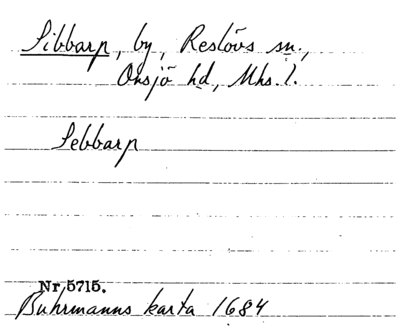 Sibbarp, by, Reslövs sn.,
Onsjö hd, Mhs. l.
Sebbarp
Nr 5715.
Buhrmanns karta 1684